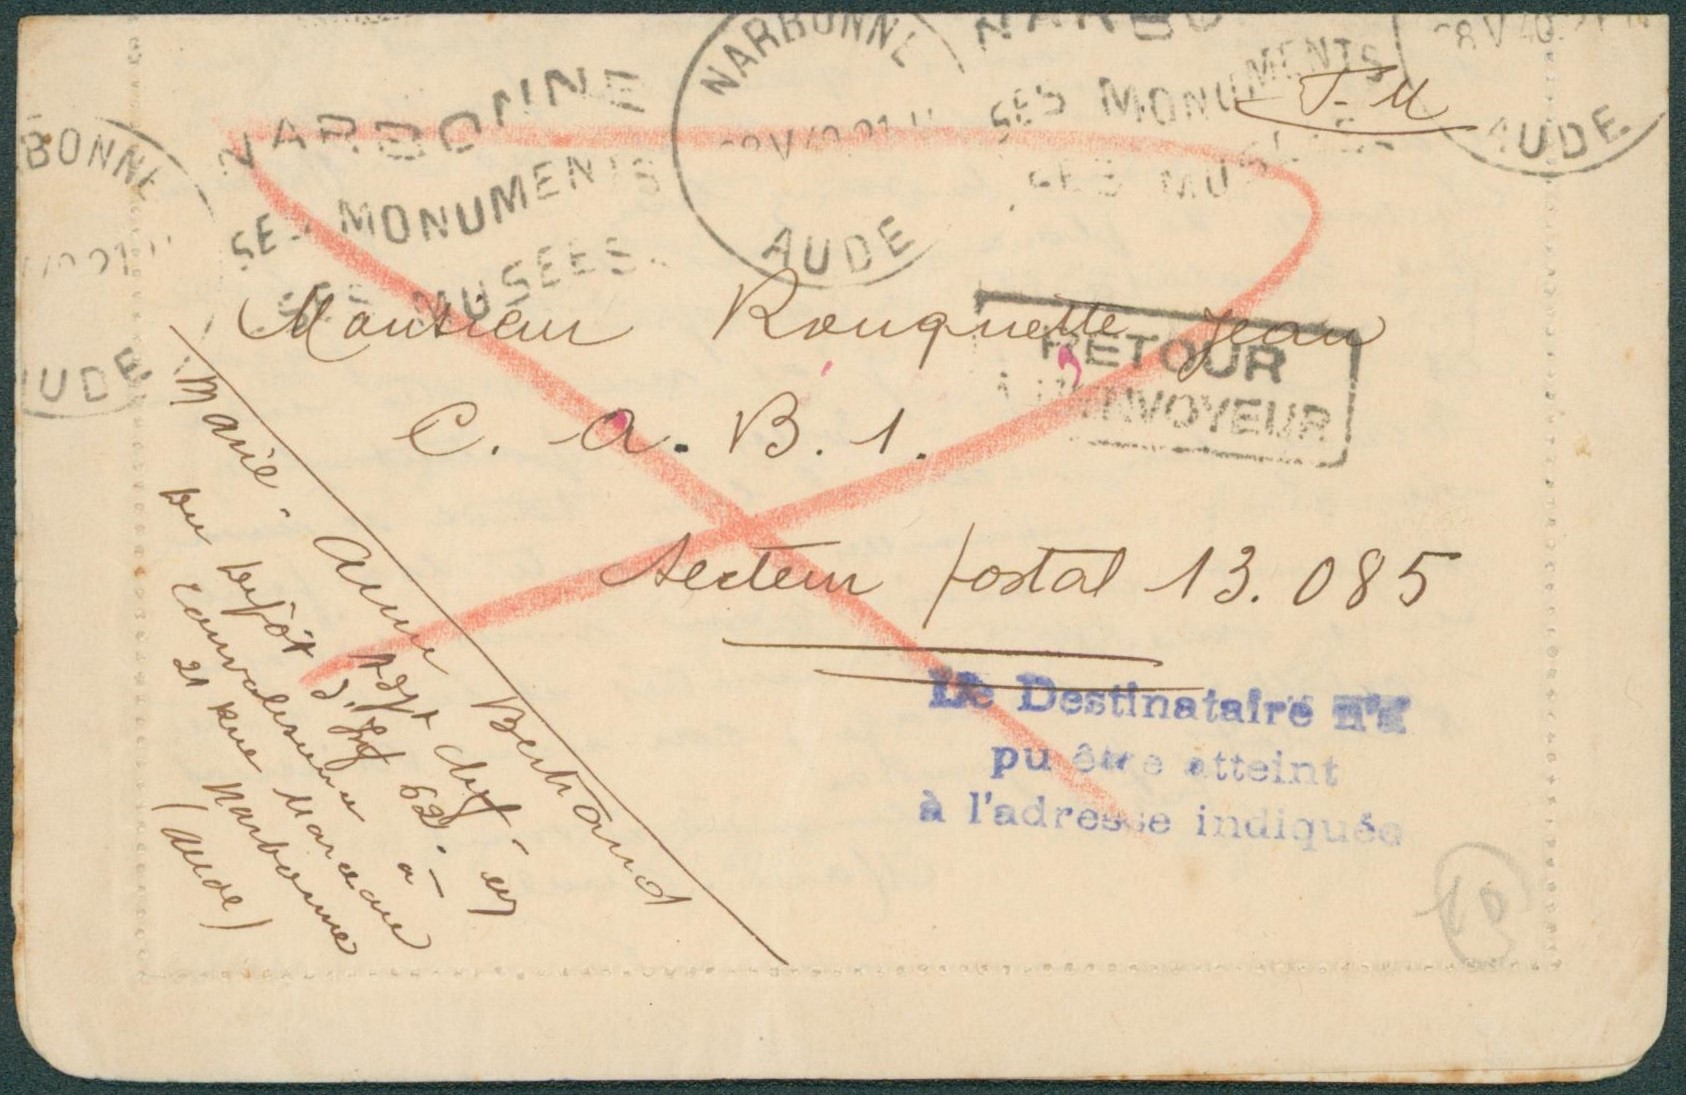 NARBONNE
SES MONUMENTS
SES MUSEES
NARBONNE
AUDE
SES MONUMENTS
SES MUSEES
28 V 40
AUDE
F. M
BONNE
AUDE
Monsieur Rouquette Jean
C. A. B. 1.
Secteur postal 13.085
RETOUR
A L'ENVOYEUR
Le Destinataire n'a
pu être atteint
à l'adresse indiquée
Marie. Anne Bertrand
Adjt chef - en
du dépôt d'Inf 62. - à
convalescence
21 Rue Marceau
Narbonne
(Aude)
10